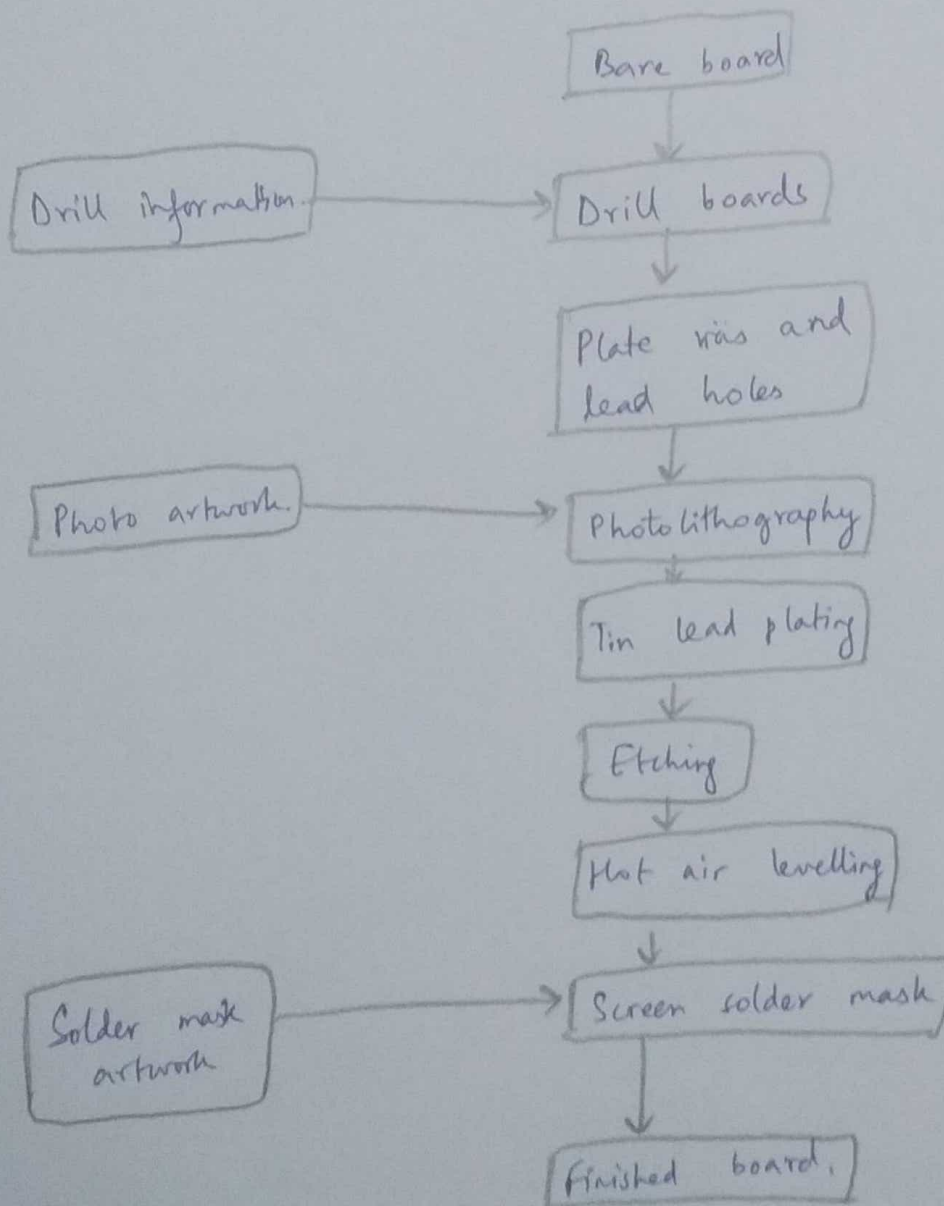 Bare board
Drill information.
Drill boards
Plate vias and
lead holes
Photo artwork.
Photolithography
Tin lead plating
Etching
Hot air levelling
Solder mask
artwork
Screen solder mask
Finished board.